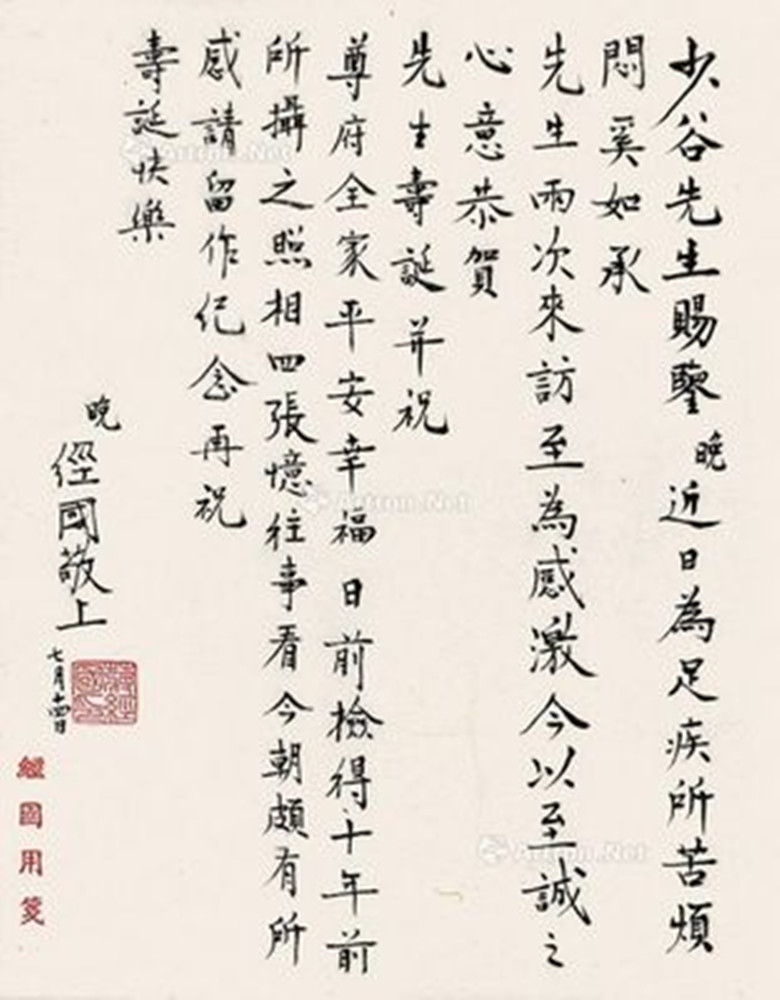 少谷先生賜鑒晚近日為足疾所苦煩
悶奚如承
先生兩次來訪至為感激今以至誠之
心意恭賀
先生壽誕并祝
尊府全家平安幸福日前檢得十年前
所攝之照相四張憶往事看今朝頗有所
感請留作紀念再祝
壽誕快樂
晚
經國敬上
七月十四日
經國用箋
Artron.Net
Artron.Net
Artron.Net